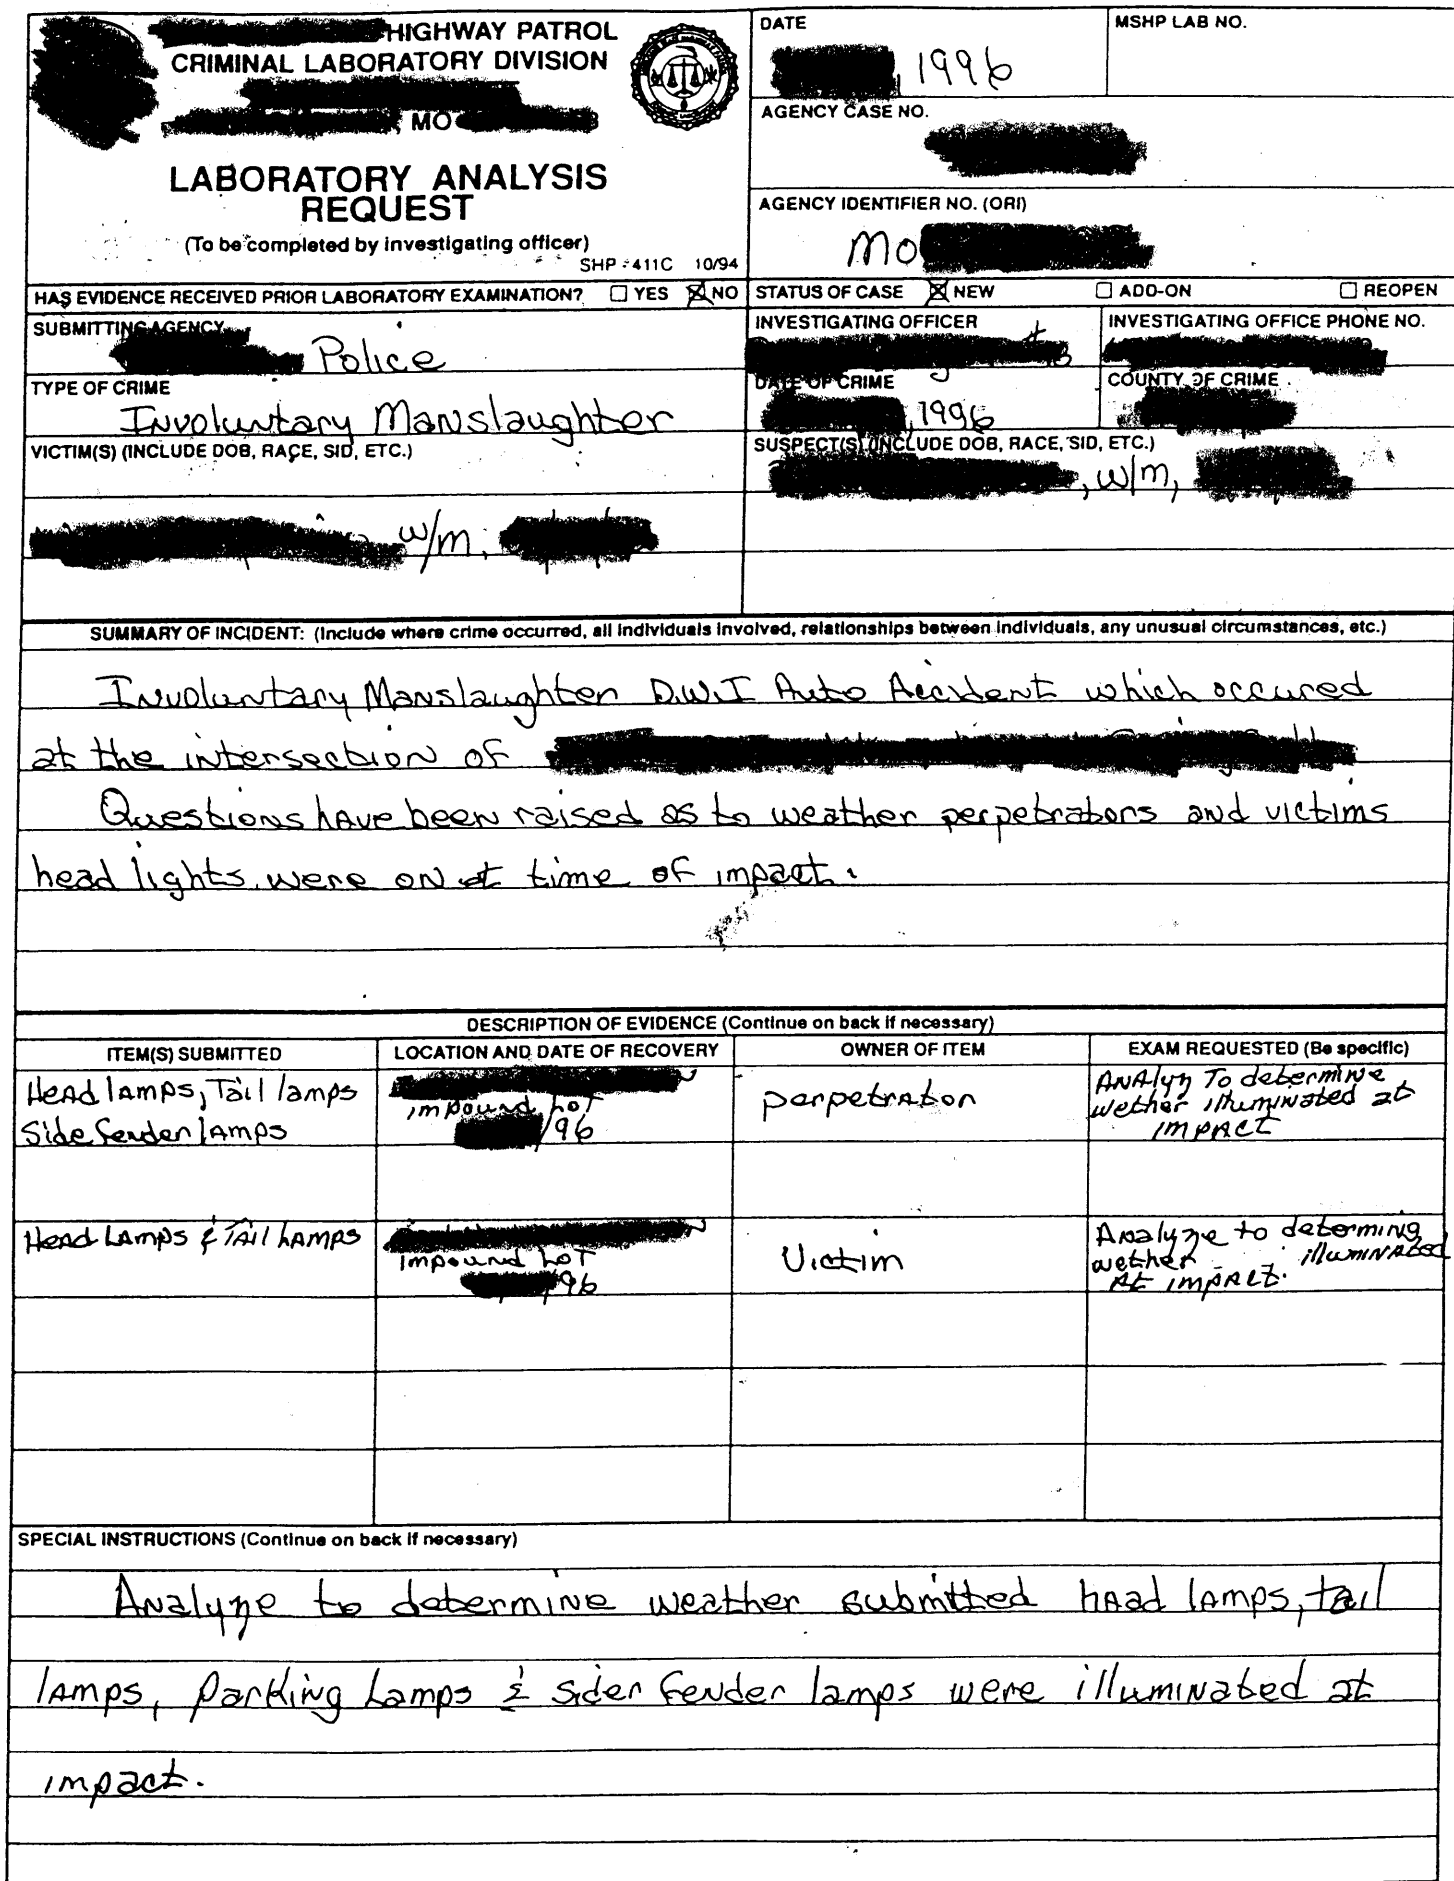 HIGHWAY PATROL
CRIMINAL LABORATORY DIVISION
MO
LABORATORY ANALYSIS
REQUEST
(To be completed by investigating officer)
SHP - 411C 10/94
DATE
, 1996
MSHP LAB NO.
AGENCY CASE NO.
AGENCY IDENTIFIER NO. (ORI)
MO
HAS EVIDENCE RECEIVED PRIOR LABORATORY EXAMINATION? ☐ YES ☒ NO
STATUS OF CASE ☒ NEW ☐ ADD-ON ☐ REOPEN
SUBMITTING AGENCY
Police
INVESTIGATING OFFICER
INVESTIGATING OFFICE PHONE NO.
TYPE OF CRIME
Involuntary Manslaughter
DATE OF CRIME
, 1996
COUNTY OF CRIME
VICTIM(S) (INCLUDE DOB, RACE, SID, ETC.)
w/m,
SUSPECT(S) (INCLUDE DOB, RACE, SID, ETC.)
, w/m,
SUMMARY OF INCIDENT: (Include where crime occurred, all individuals involved, relationships between individuals, any unusual circumstances, etc.)
Involuntary Manslaughter D.W.I Auto Accident which occured
at the intersection of
Questions have been raised as to weather perpetrators and victims
head lights were on at time of impact.
DESCRIPTION OF EVIDENCE (Continue on back if necessary)
ITEM(S) SUBMITTED LOCATION AND DATE OF RECOVERY OWNER OF ITEM EXAM REQUESTED (Be specific)
Head lamps, Tail lamps
Side fender lamps
impound Lot
/96
perpetrator
ANAlyz To determine
wether illuminated at
impact
Head Lamps & Tail Lamps
Impound Lot
/96
Victim
Analyze to determing
wether illuminated
At impact.
SPECIAL INSTRUCTIONS (Continue on back if necessary)
Analyze to determine weather submitted head lamps, tail
lamps, parking Lamps & sider fender lamps were illuminated at
impact.